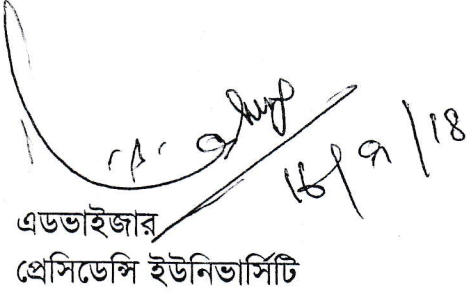 16/9/18
এডভাইজার
প্রেসিডেন্সি ইউনিভার্সিটি